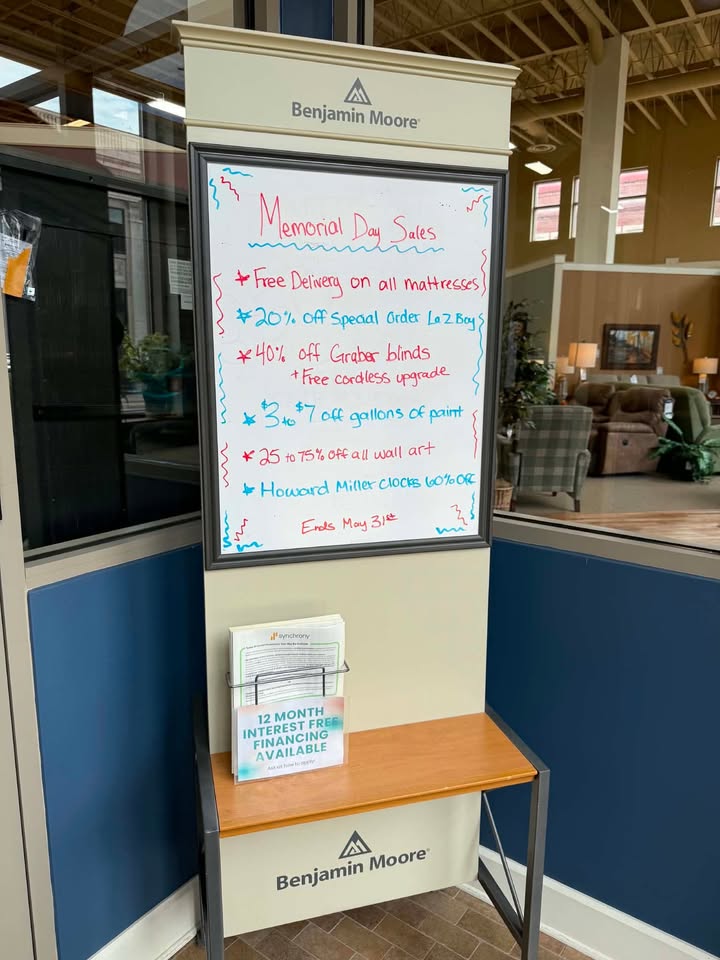 Benjamin Moore®
Memorial Day Sales
* Free Delivery on all mattresses
* 20% off Special Order La Z Boy
* 40% off Graber blinds
+ Free cordless upgrade
* $3 to $7 off gallons of paint
* 25 to 75% off all wall art
* Howard Miller clocks 60% Off
Ends May 31st
synchrony
12 MONTH
INTEREST FREE
FINANCING
AVAILABLE
Ask us how to apply!
Benjamin Moore®